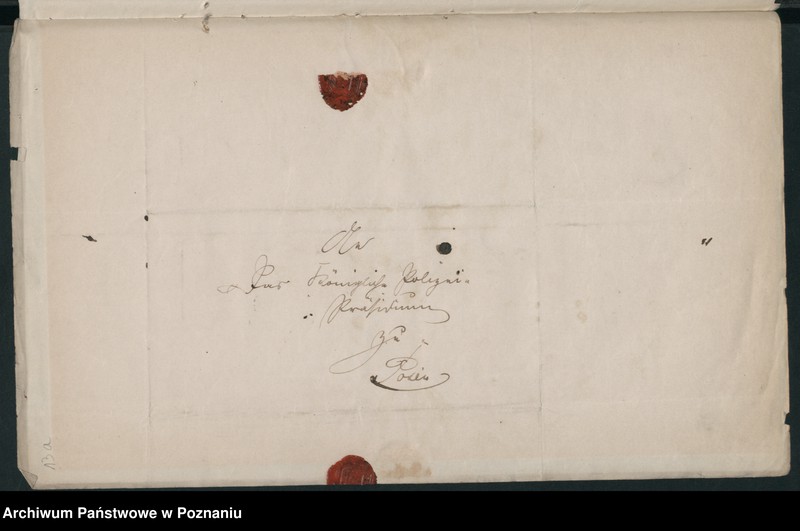 An
Das Königliche Polizei-
Präsidium
zu
Posen
13a
Archiwum Państwowe w Poznaniu